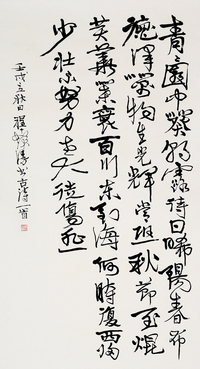 青園中葵朝露待日晞陽春布
德澤萬物生光輝常恐秋節至焜
黃華葉衰百川東到海何時復西歸
少壯不努力老大徒傷悲
秋日書古詩一首